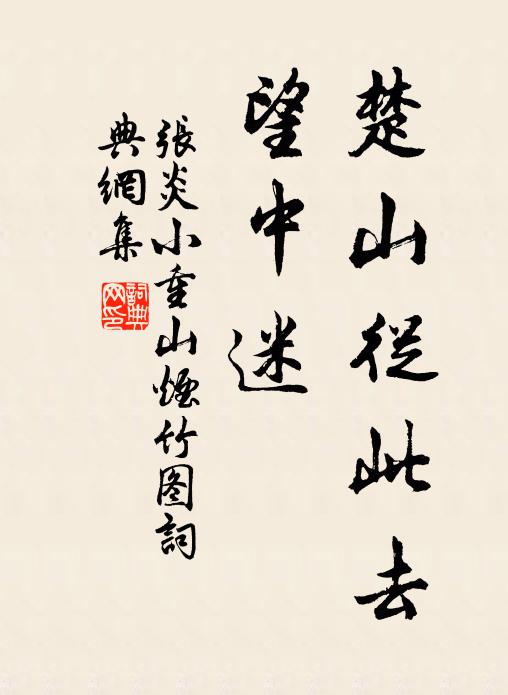 楚山從此去
望中迷
張炎小重山煙竹图詞
典網集
詞典
网印